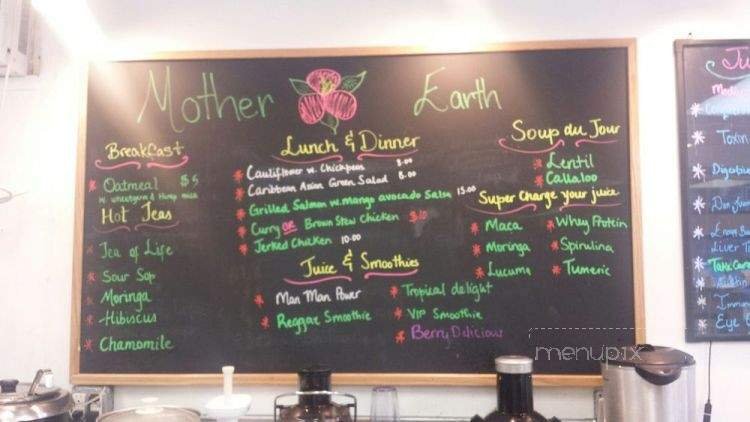 Mother Earth
Breakfast
Oatmeal $5
w. wheatgerm & Hemp milk
Hot Teas
Tea of Life
Sour Sop
Moringa
Hibiscus
Chamomile
Lunch & Dinner
Cauliflower w. Chickpeas 8.00
Caribbean Asian Green Salad 8.00
Grilled Salmon w. mango avocado Salsa 15.00
Curry OR Brown Stew Chicken
Jerked Chicken 10.00
Juice & Smoothies
Man Man Power
Reggae Smoothie
Tropical delight
VIP Smoothie
Berry Delicious
Soup du Jour
Lentil
Callaloo
Super Charge your juice
Maca
Moringa
Lucuma
Whey Protein
Spirulina
Tumeric
Ju
Toxin
Digestive
Don Juan
Liver T
Immun
Eye
menupix